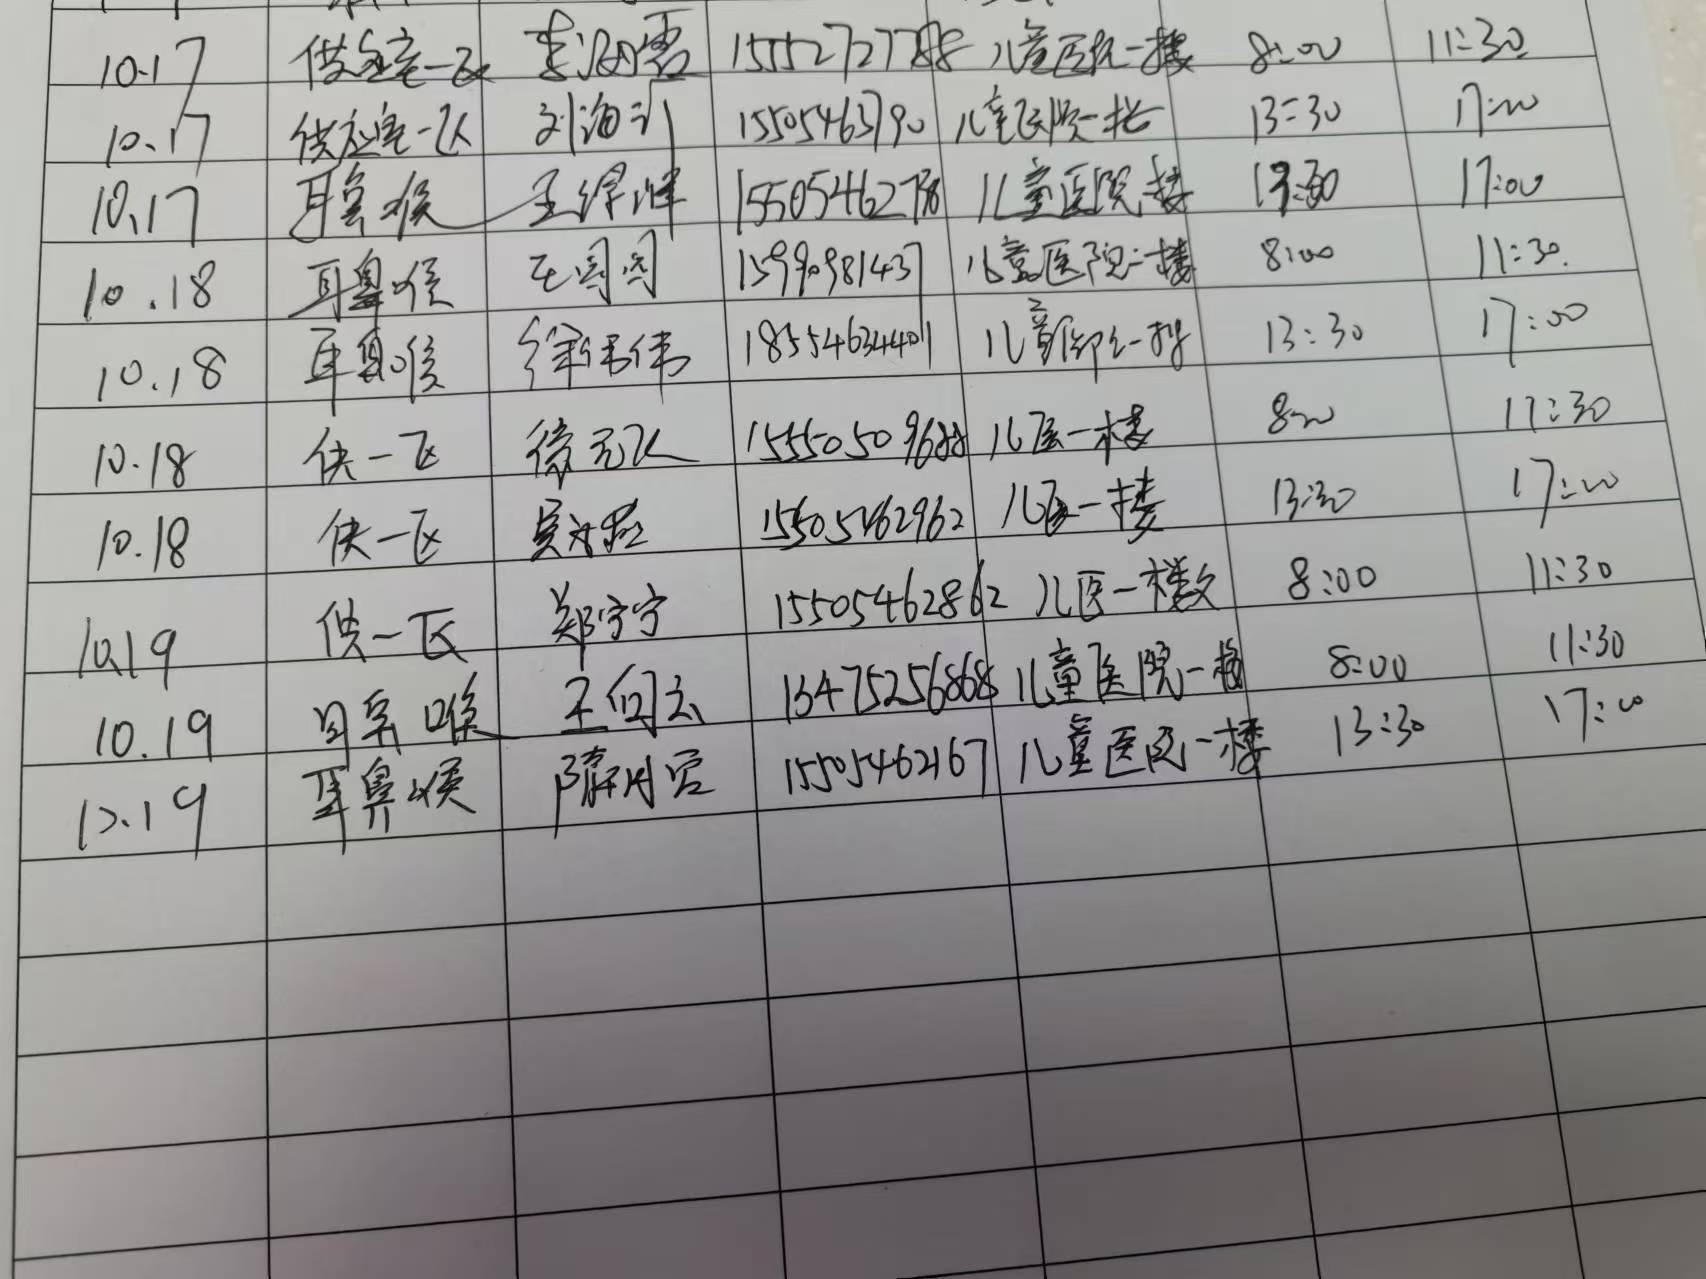 10.17 供应室一区 15552727788 儿童医院一楼 8:00 11:30
10.17 供应室一区 刘海 15505463790 儿童医院一楼 13:30 17:00
10.17 耳鼻喉 王 15505462798 儿童医院一楼 13:30 17:00
10.18 耳鼻喉 15990981437 儿童医院一楼 8:00 11:30
10.18 耳鼻喉 徐伟伟 18554634401 儿童 一楼 13:30 17:00
10.18 供一区 徐元 15550509688 儿医一楼 8:00 11:30
10.18 供一区 15505462962 儿医一楼 13:30 17:00
10.19 供一区 郑宁宁 15505462862 儿医一楼 8:00 11:30
10.19 耳鼻喉 王 13475256868 儿童医院一楼 8:00 11:30
10.19 耳鼻喉 隋 15505462167 儿童医院一楼 13:30 17:00